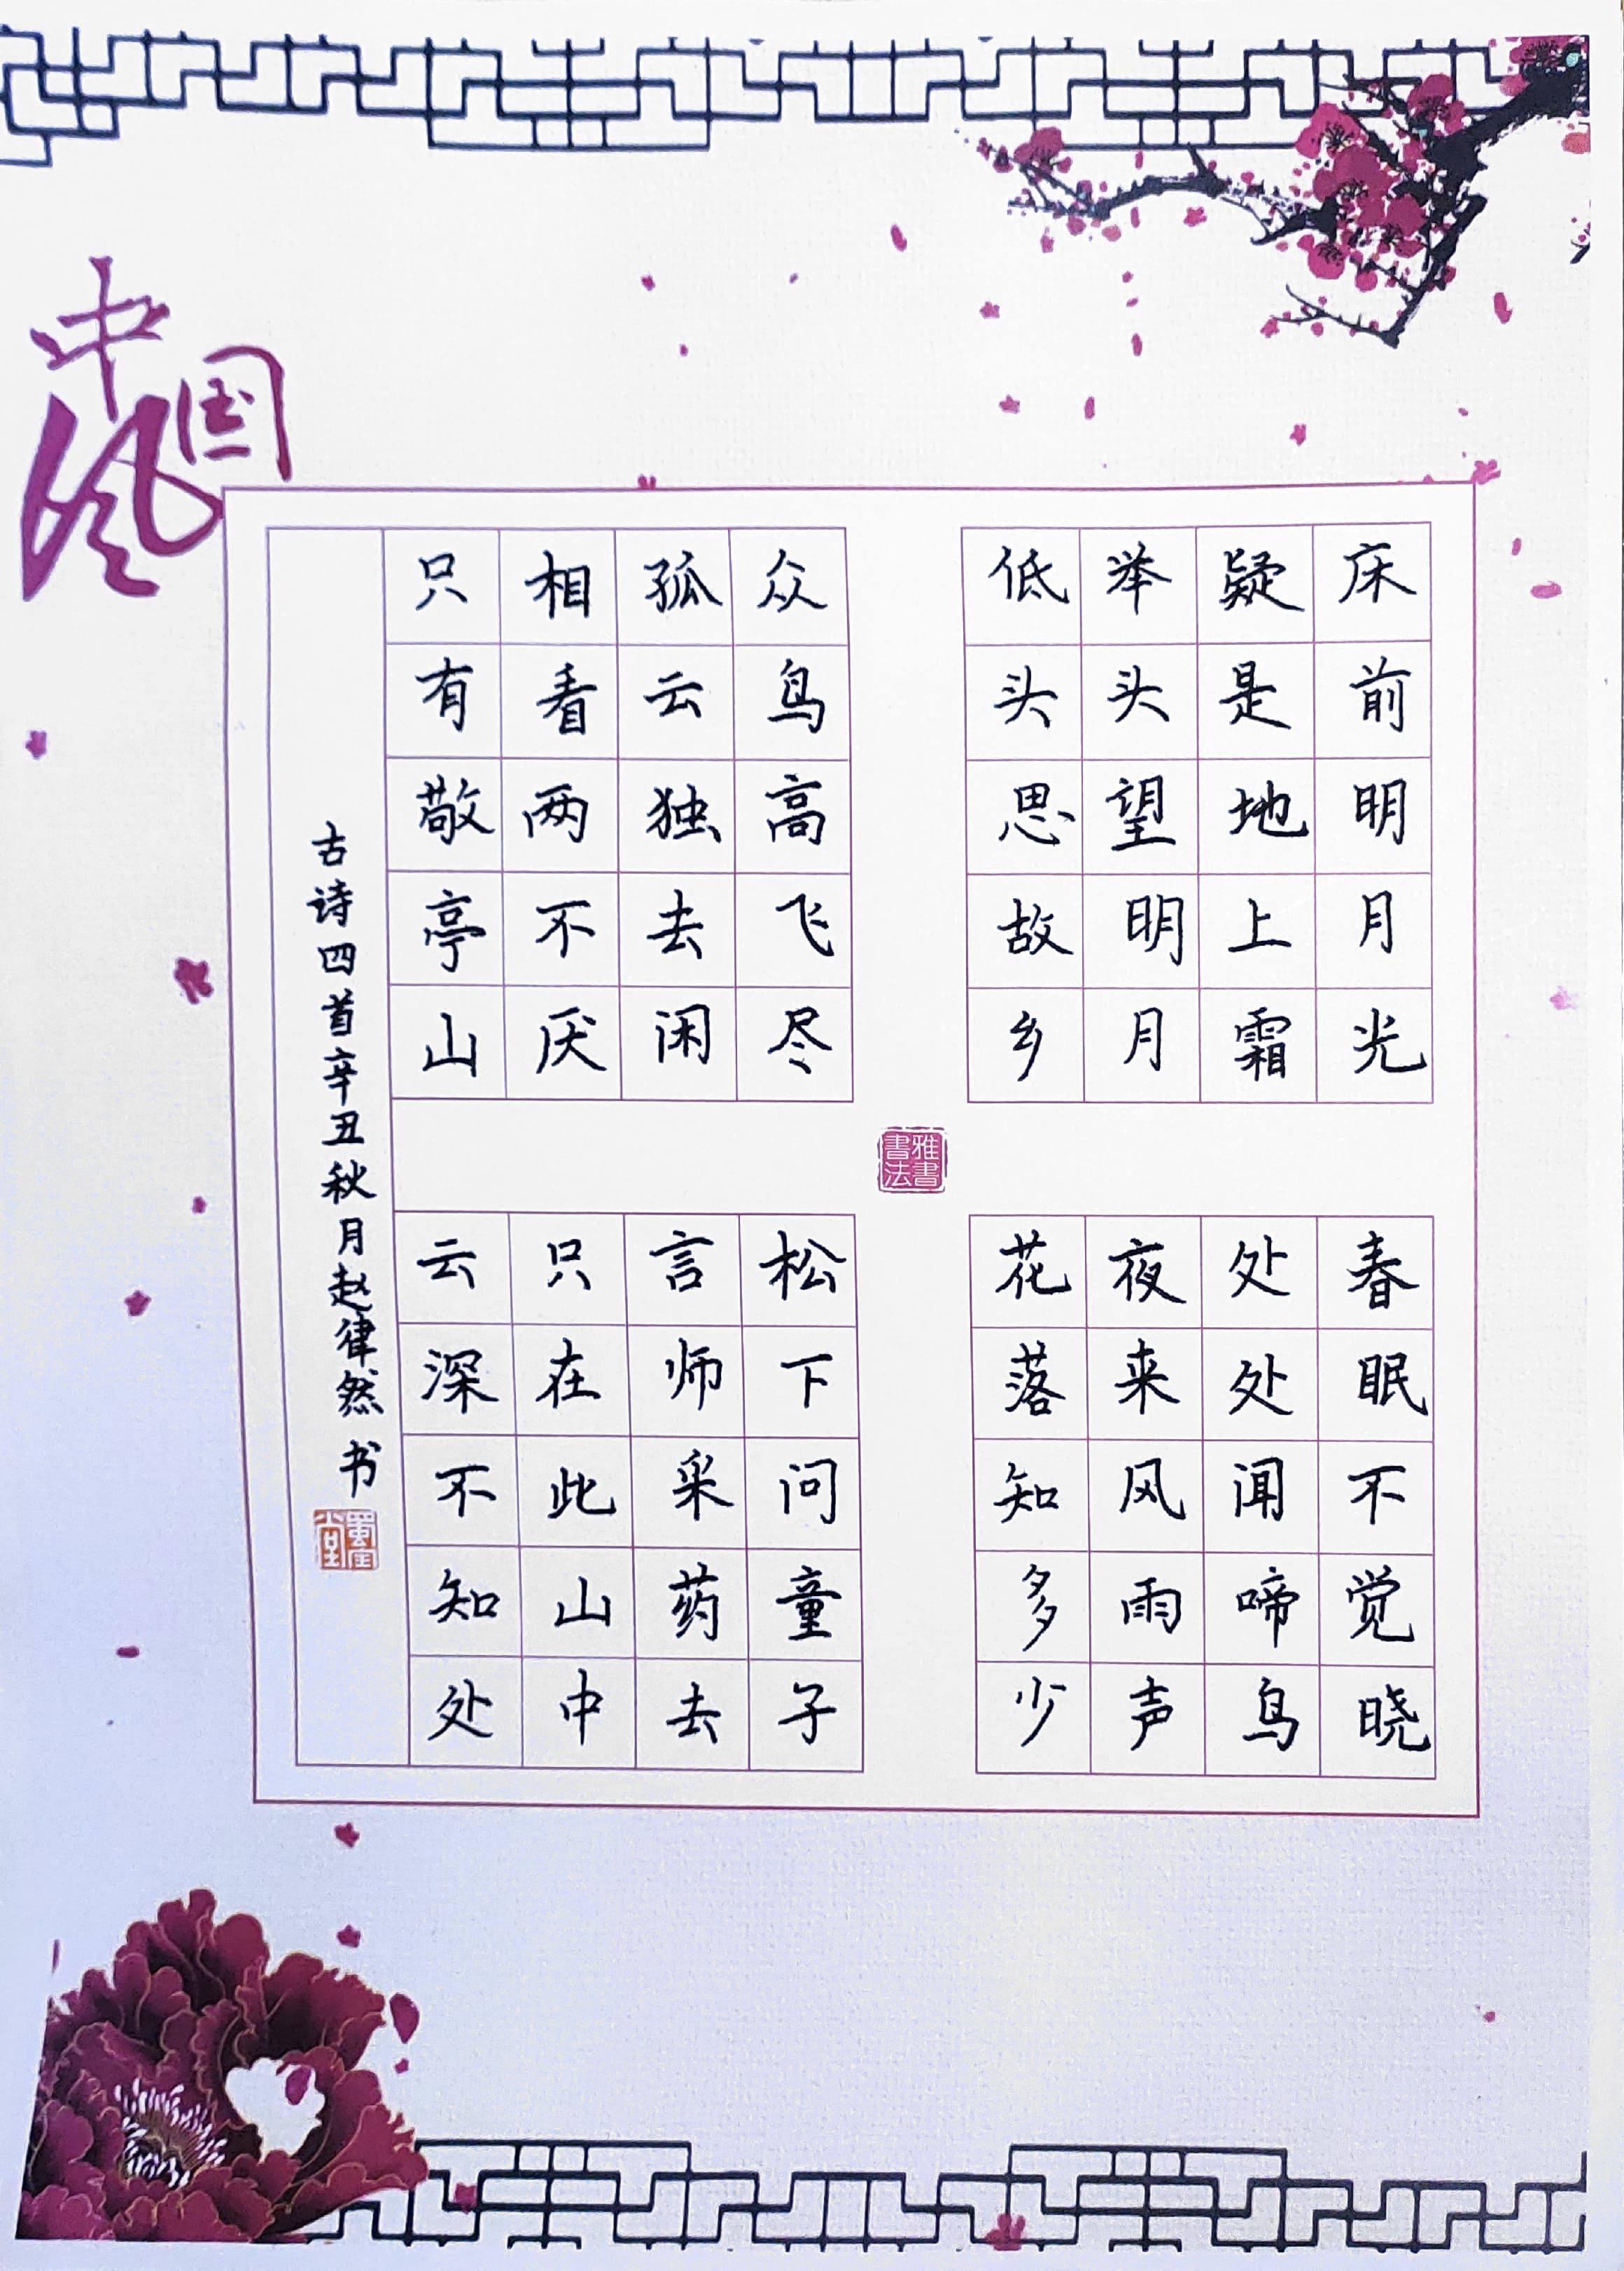 中国风
床前明月光
疑是地上霜
举头望明月
低头思故乡
众鸟高飞尽
孤云独去闲
相看两不厌
只有敬亭山
雅書書法
春眠不觉晓
处处闻啼鸟
夜来风雨声
花落知多少
松下问童子
言师采药去
只在此山中
云深不知处
古诗四首辛丑秋月赵律然书